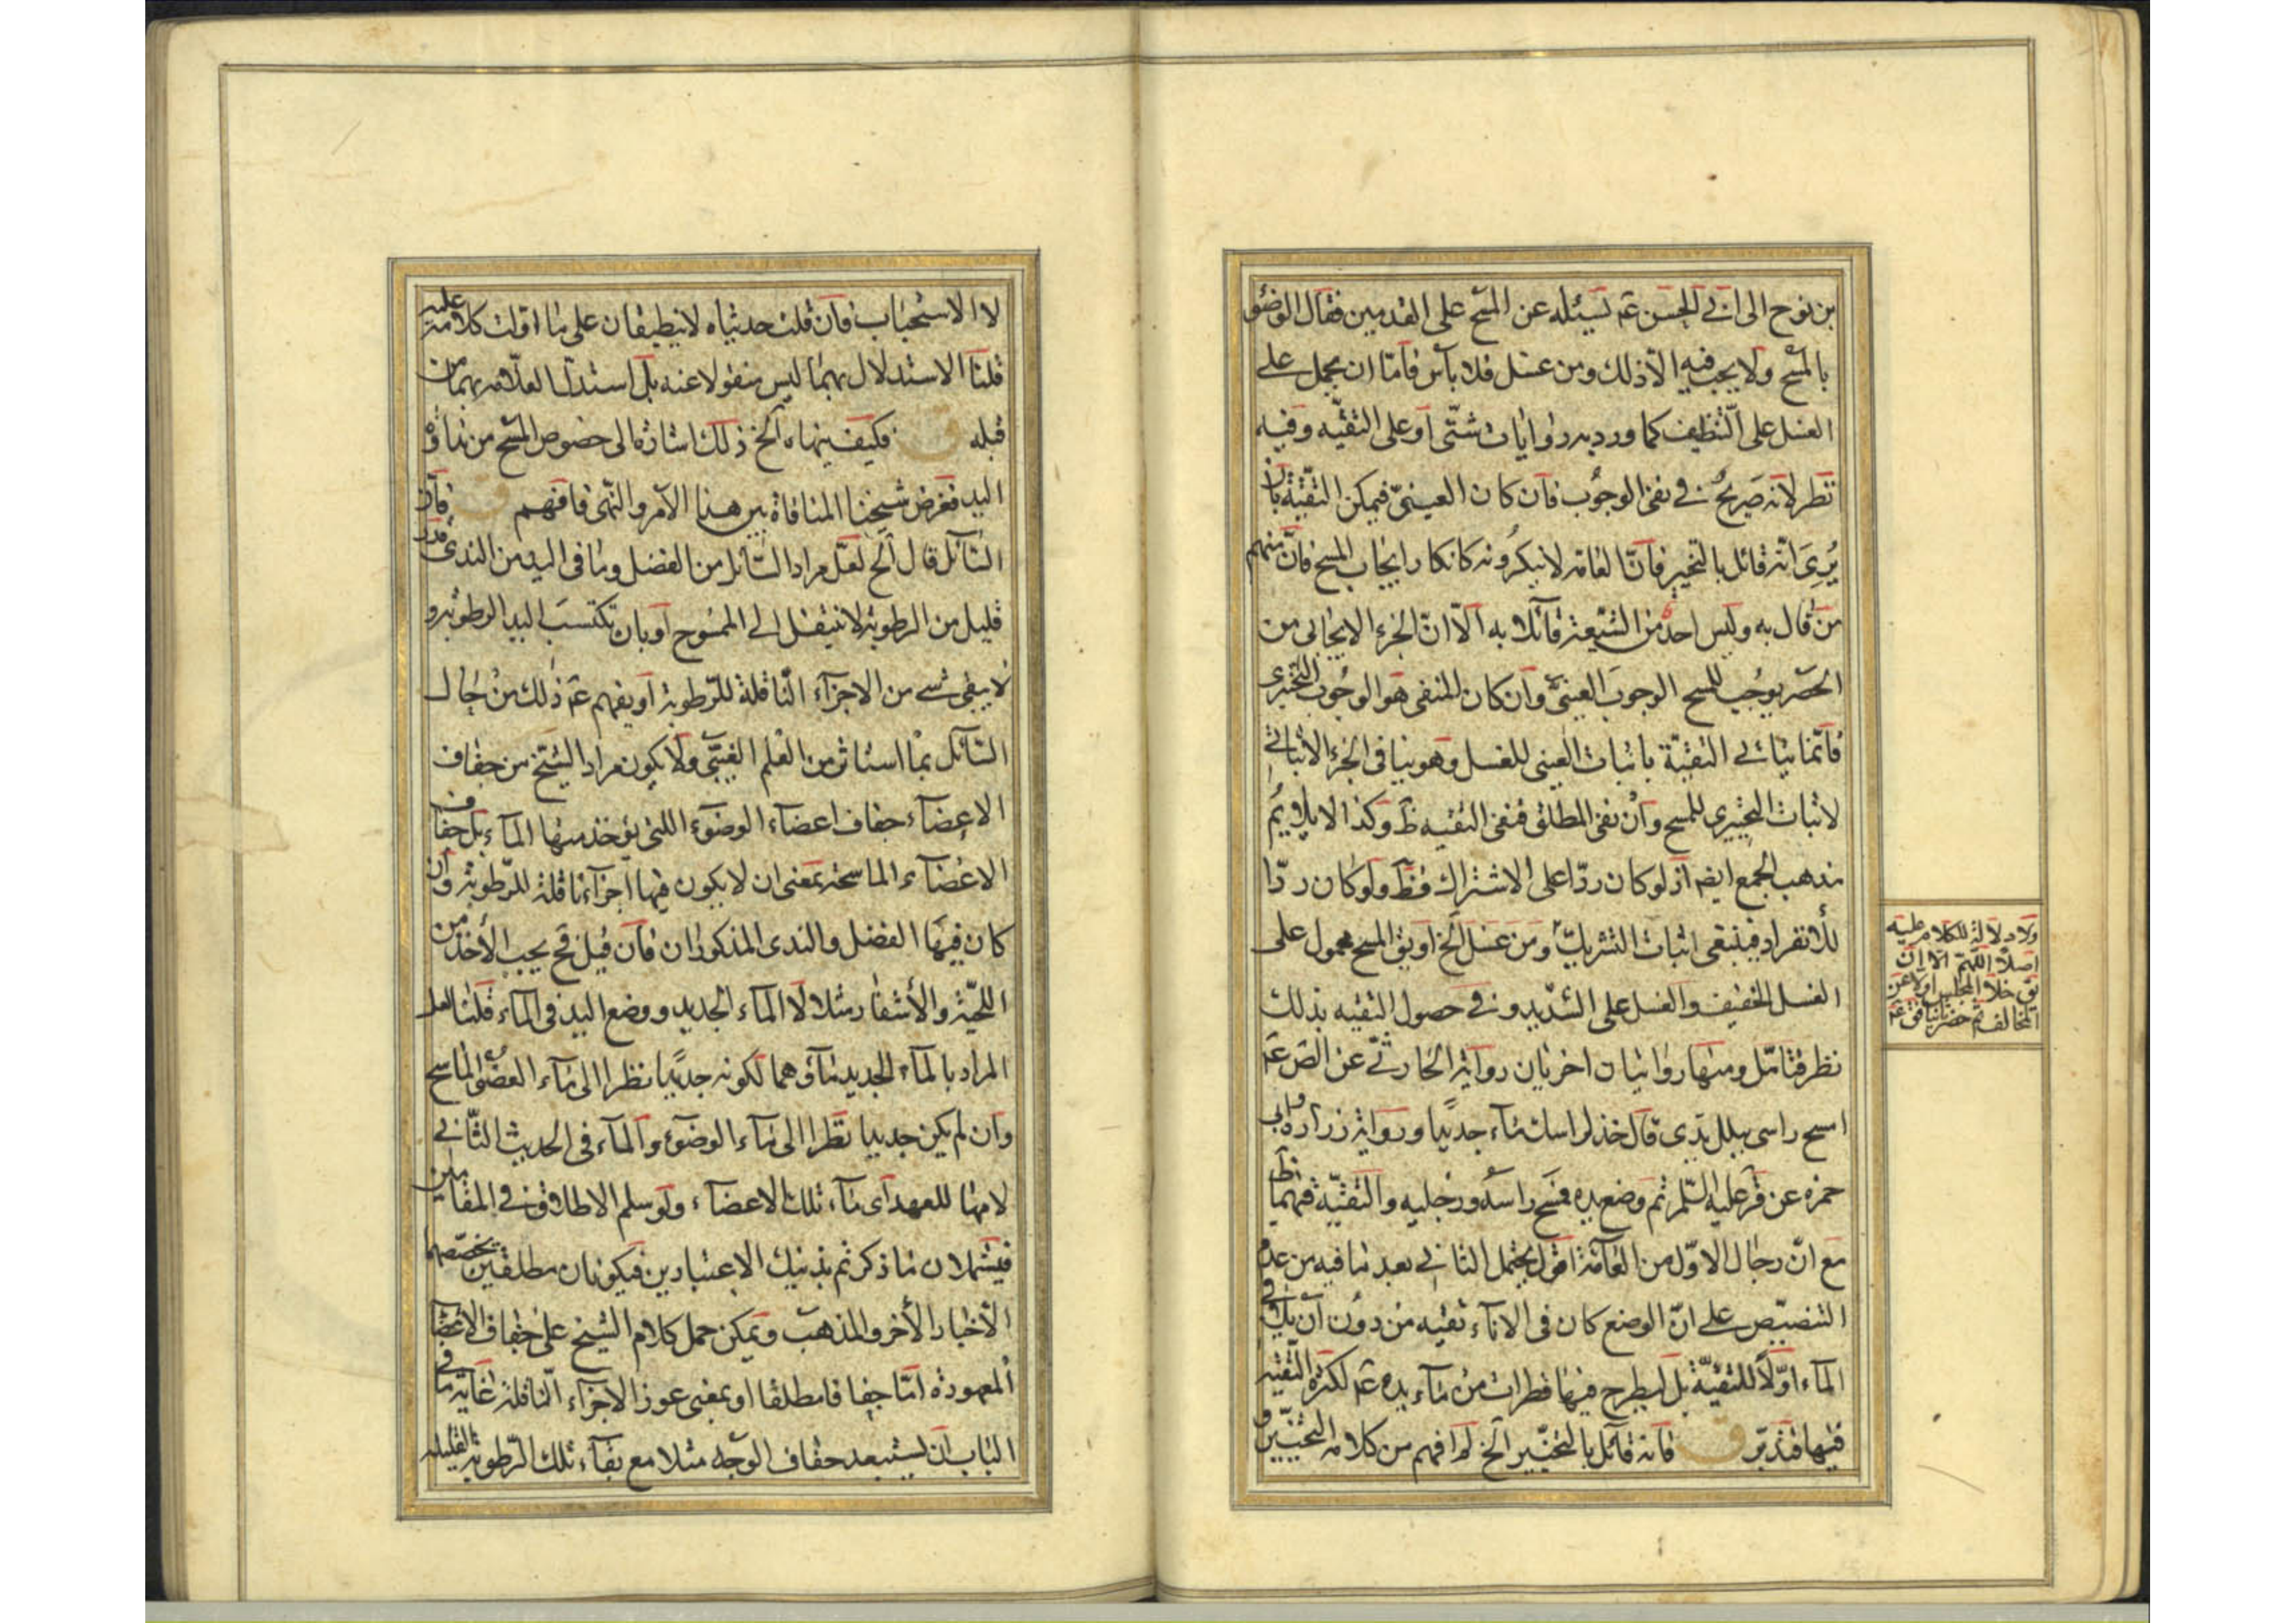 بن نوح الى ابى الحسن عم يسئله عن المسح على القدمين فقال الوضوء
بالمسح ولا يجب فيه الا ذلك ومن غسل فلا بأس فامّا ان يحمل على
الغسل على التّنظيف كما ورد به روايات شتّى او على التقيّه وفيه
نظر لانه صَريحٌ فى نفى الوجُوب فان كان العينىّ فيمكن التقيّة بان
يُرِىَ انّه قائل بالتخيير فانّ العامّه لا ينكرُونه كانكار ايجاب المسح فانّ منهم
من قال به وليس احدٌ من الشيعة قائلا به الّا انّ الجزء الايجابى من
الحصر يوجُب للمسح الوجوبَ العينىَّ وان كان المنفى هو الوجُوب التخييرى
فانّما يتاتى التقيّة باثبات العينى للغسل وهو ينافى الجزء الاثباتى
لاثبات التخييرى للمسح وان نفى المطلق فنفى التقيه ظ وكذا لا يلايمُ
مذهب الجمع ايضه اذ لو كان ردّا على الاشتراك فظ ولو كان ردّا
للأنفراد فينبغى اثبات التشريك ومن غسَل الخ او يق المسح محمول على
الغسل الخفيف والغسل على الشّديد وفى حصول التقيه بذلك
نظر فتامّل ومنها روايتان اخريان رواية الحارثى عن الص عم
امسح راسى ببلل يدى قال خذ لراسك ماء جديدًا ورواية زراره وابى
حمزه عن قر عليه السّلم ثم وضع يده فمسح راسه ورجليه والتقيّة فيهما ظ
مع انّ رجال الاوّل من العامّة اقول يحتمل الثانى بعد ما فيه من عدم
التنصيص على انّ الوضع كان فى الاناء تقيه من دون ان يك فى
الماء اوّلاً للتقيّة بل ليطرح فيها قطرات من ماء يده عم لكثرة التقيّه
فيها فتدبّر ق فانه قائل بالتخيير الخ لم افهم من كلامه التخيير
ولا دلالة للكلام عليه
اصلا اللّهم الّا ان
يق خلا المجلس اولا عن
المخالف ثم حضر
لا الاستحباب فان قلت حديثاه لا ينطبقان على ما اوّلت كلامه عليه
قلنا الاستدلال بهما ليس منقولا عنه بل استدلّ العلّامه بهما من
قبله ق فكيف ينهاه الخ ذلك اشارة الى خصوص المسح من نداوة
اليد فغرض شيخنا المنافاة بين هذا الامر والنّهى فافهم ق فان
السّائل قال الخ لعلّ مراد السّائل من الفضل وما فى اليد من الندى قدر
قليل من الرطوبة لا ينتقل الى الممسُوح او بان تكتسبَ اليد الرطوبة و
لا يبقى شىء من الاجزاء النّاقلة للرّطوبة او يفهم عم ذلك من حال
السّائل بما استاثر من العلم الغيبىّ ولا يكون مراد الشيخ من جفاف
الاعضاء جفاف اعضاء الوضوء اللتى يؤخذ منها الماء بل جفاف
الاعضاء الماسحة بمعنى ان لا يكون فيها اجزاء ناقلة للرّطوبة وان
كان فيها الفضل والندى المذكوران فان قيل فح يجب الأخذ من
اللحيّة والأشفار مثلا لا الماء الجديد ووضع اليد فى الماء قلنا لعل
المراد بالماء الجديد ماؤهما لكونه جديدًا نظرا الى ماء العضو الماسح
وان لم يكن جديدا نظرا الى ماء الوضوء والماء فى الحديث الثّانى
لامها للعهد اى ماء تلك الاعضاء ولو سلم الاطلاق فى المقامين
فيشملان ما ذكر ثم بذينك الاعتبارين فيكونان مطلقين يخصّصهما
الأخبار الأخر والمذهب ويمكن حمل كلام الشيخ على جفاف الاعضاء
المعهودة امّا جفافا مطلقا او بمعنى عوز الاجزاء النّاقلة غاية ما فى
الباب ان يستبعد جفاف الوجه مثلا مع بقاء تلك الرّطوبة القليله